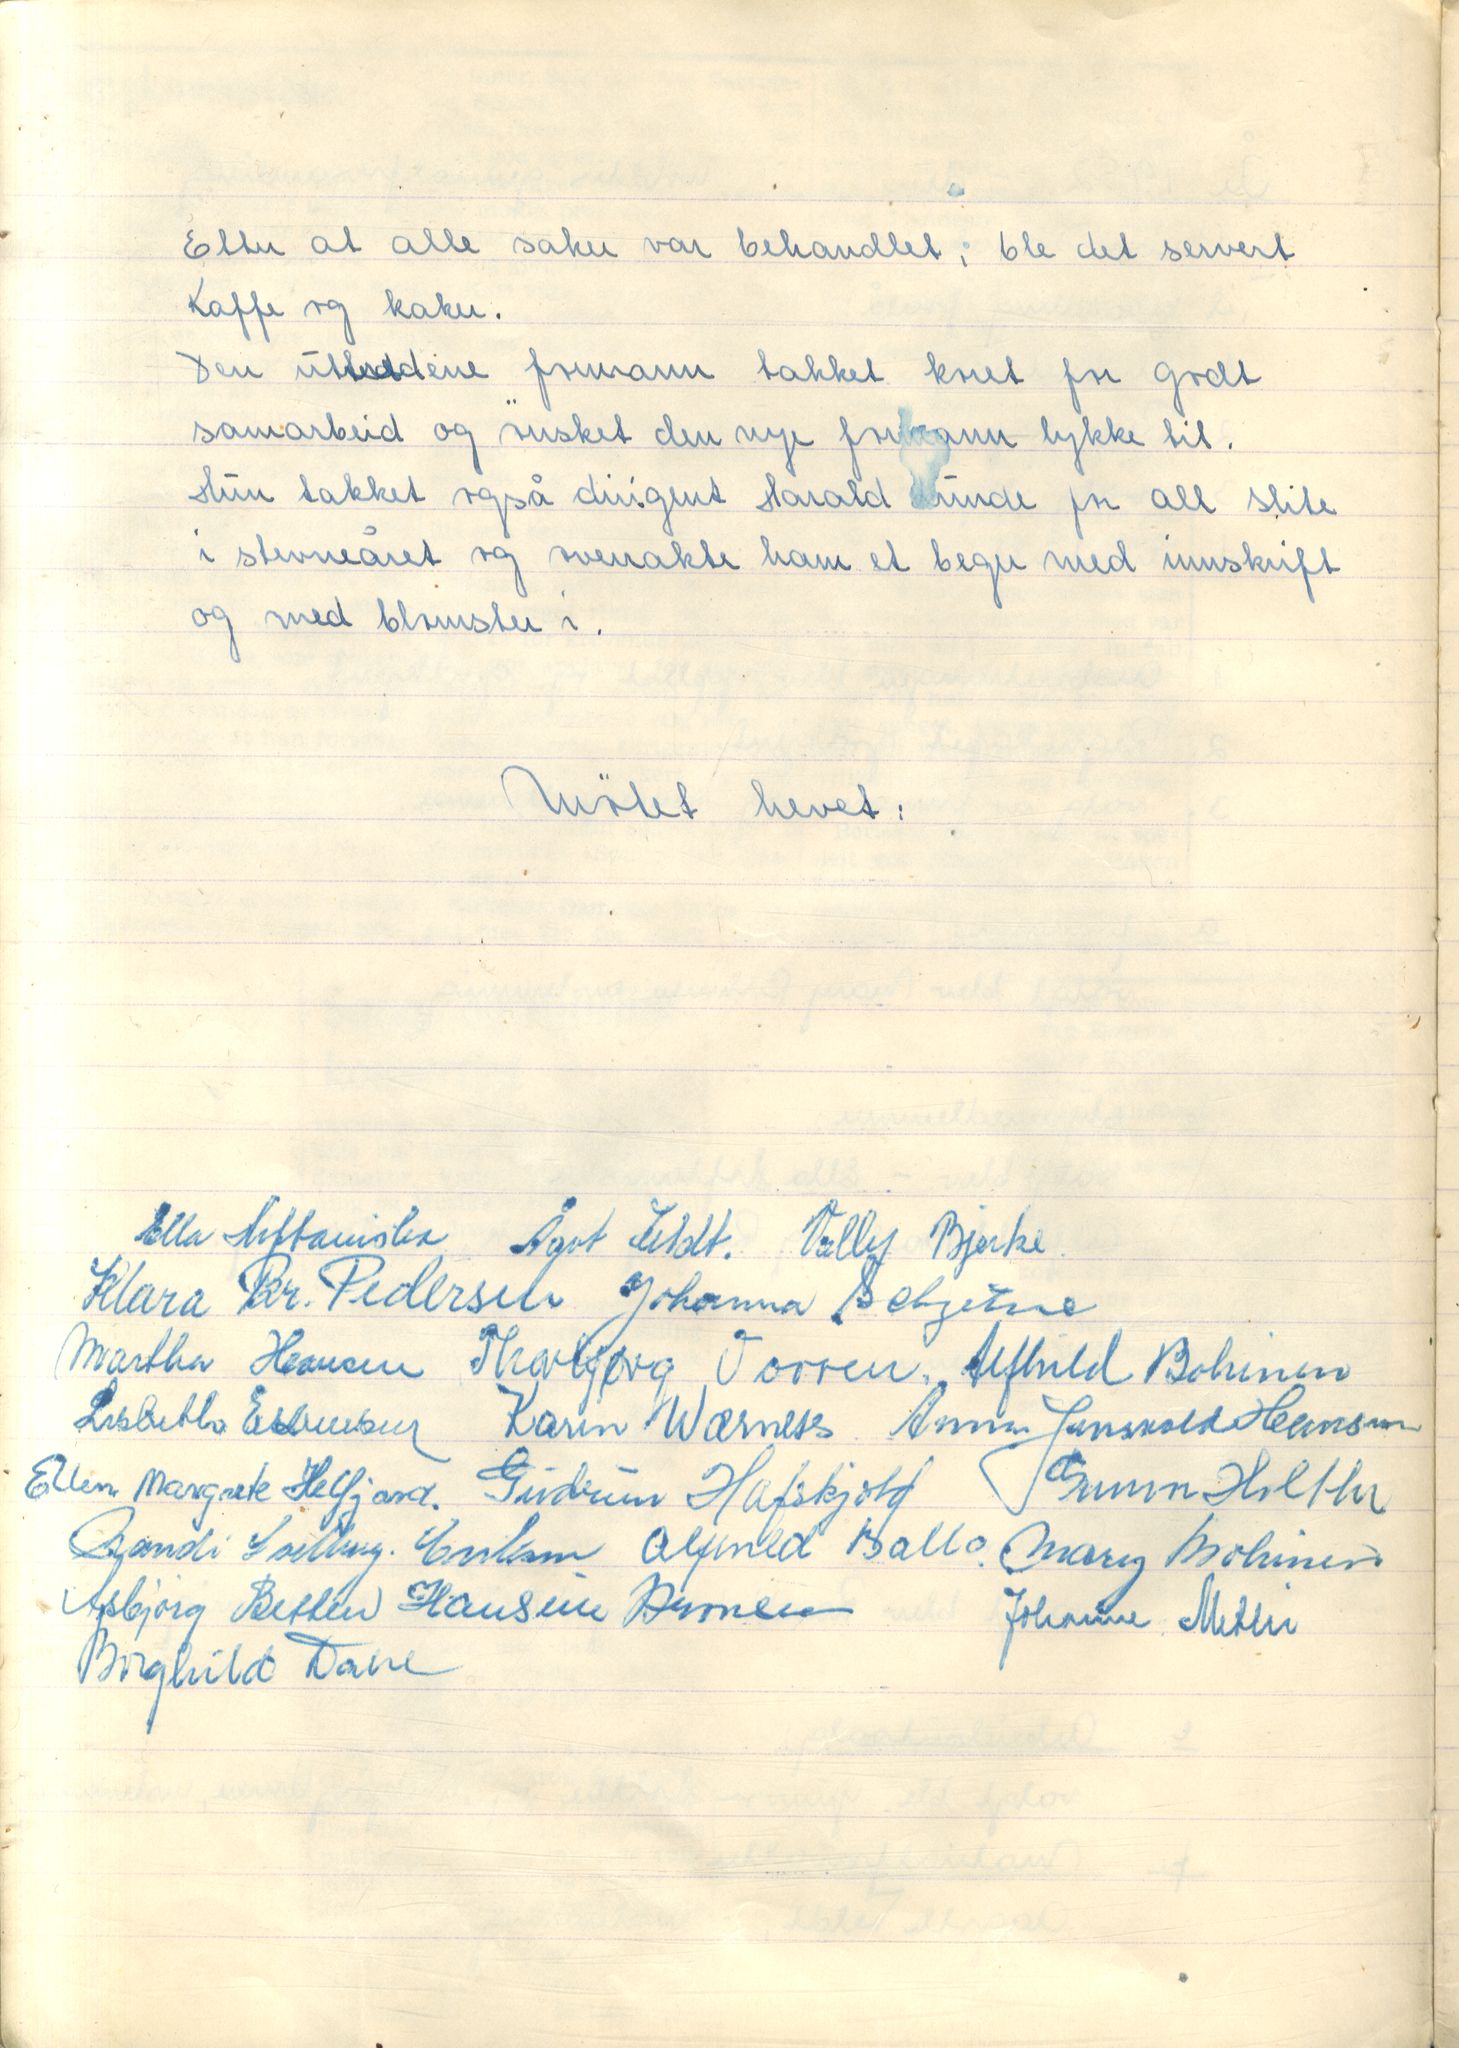 Etter at alle saker var behandlet; ble det servert
Kaffe og kaker.
Den uttreddene formann takket koret for godt
samarbeid og önsket den nye formann lykke til.
Hun takket også dirigent Harald for all slite
i stevneåret og overrakte ham et beger med innskrift
og med blomster i.
Mötet hevet:
Ella Ågot Feldt. Vally Bjerke
Klara Br. Pedersen Johanna
Martha Hansen Thorbjørg Torren. Alfhild Bohinen
Lisbeth Karin Wærness Anna Hansen
Ellen Margrete Helfjord. Gudrun Hafskjold Gunn Holthe
Randi Solbury. Eriksen Alfhild Ballo. Mary Bohinen
Asbjörg Betten Hansine Johanne Metli
Borghild Dane